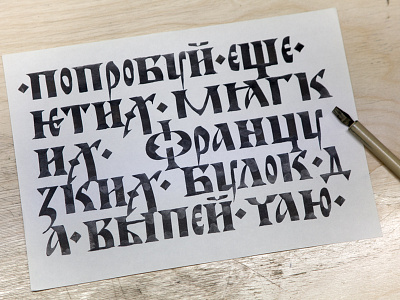 ·попробуй·еще·
ѥтих·мꙗгк
их·францу
зких·булок·д
а·выпей·чаю·